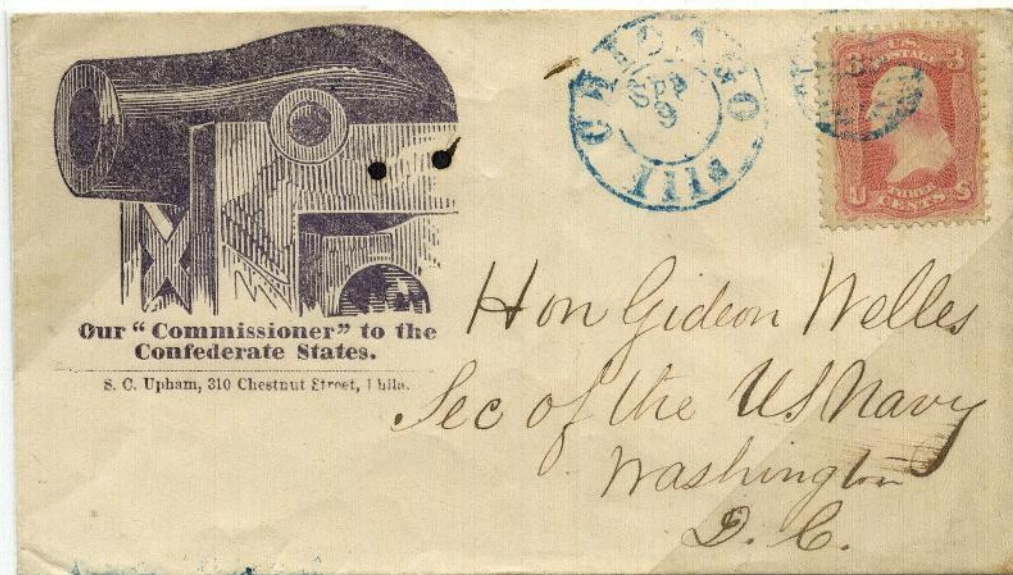 CHICAGO Ill
SEP
9
U.S. POSTAGE
3 3
THREE
U CENTS S
Our "Commissioner" to the
Confederate States.
S. C. Upham, 310 Chestnut Street, Phila.
Hon Gideon Welles
Sec of the US Navy
Washington
D. C.